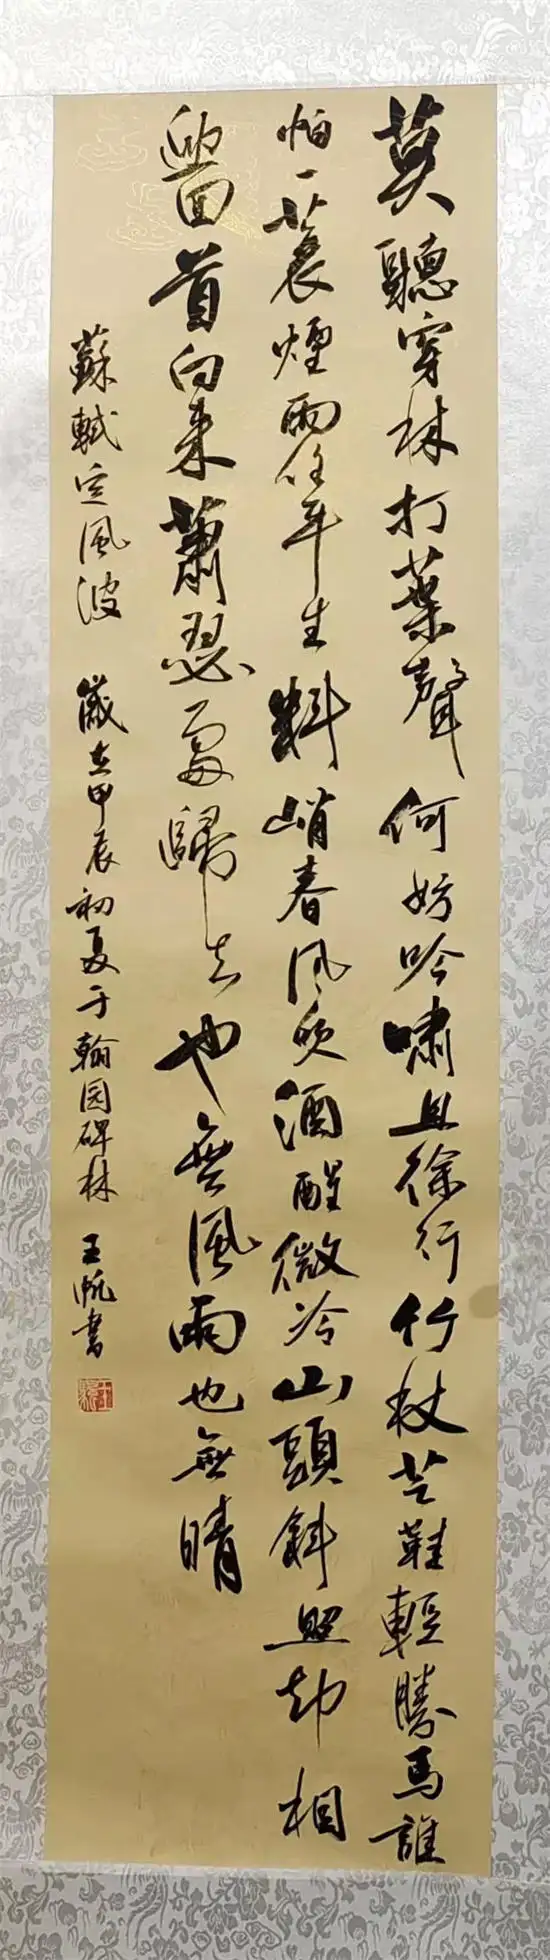 莫聽穿林打葉聲何妨吟嘯且徐行竹杖芒鞋輕勝馬誰
怕一蓑煙雨任平生料峭春風吹酒醒微冷山頭斜照却相
迎回首向來蕭瑟處歸去也無風雨也無晴
蘇軾定風波 歲在甲辰初夏于翰园碑林 王帆書